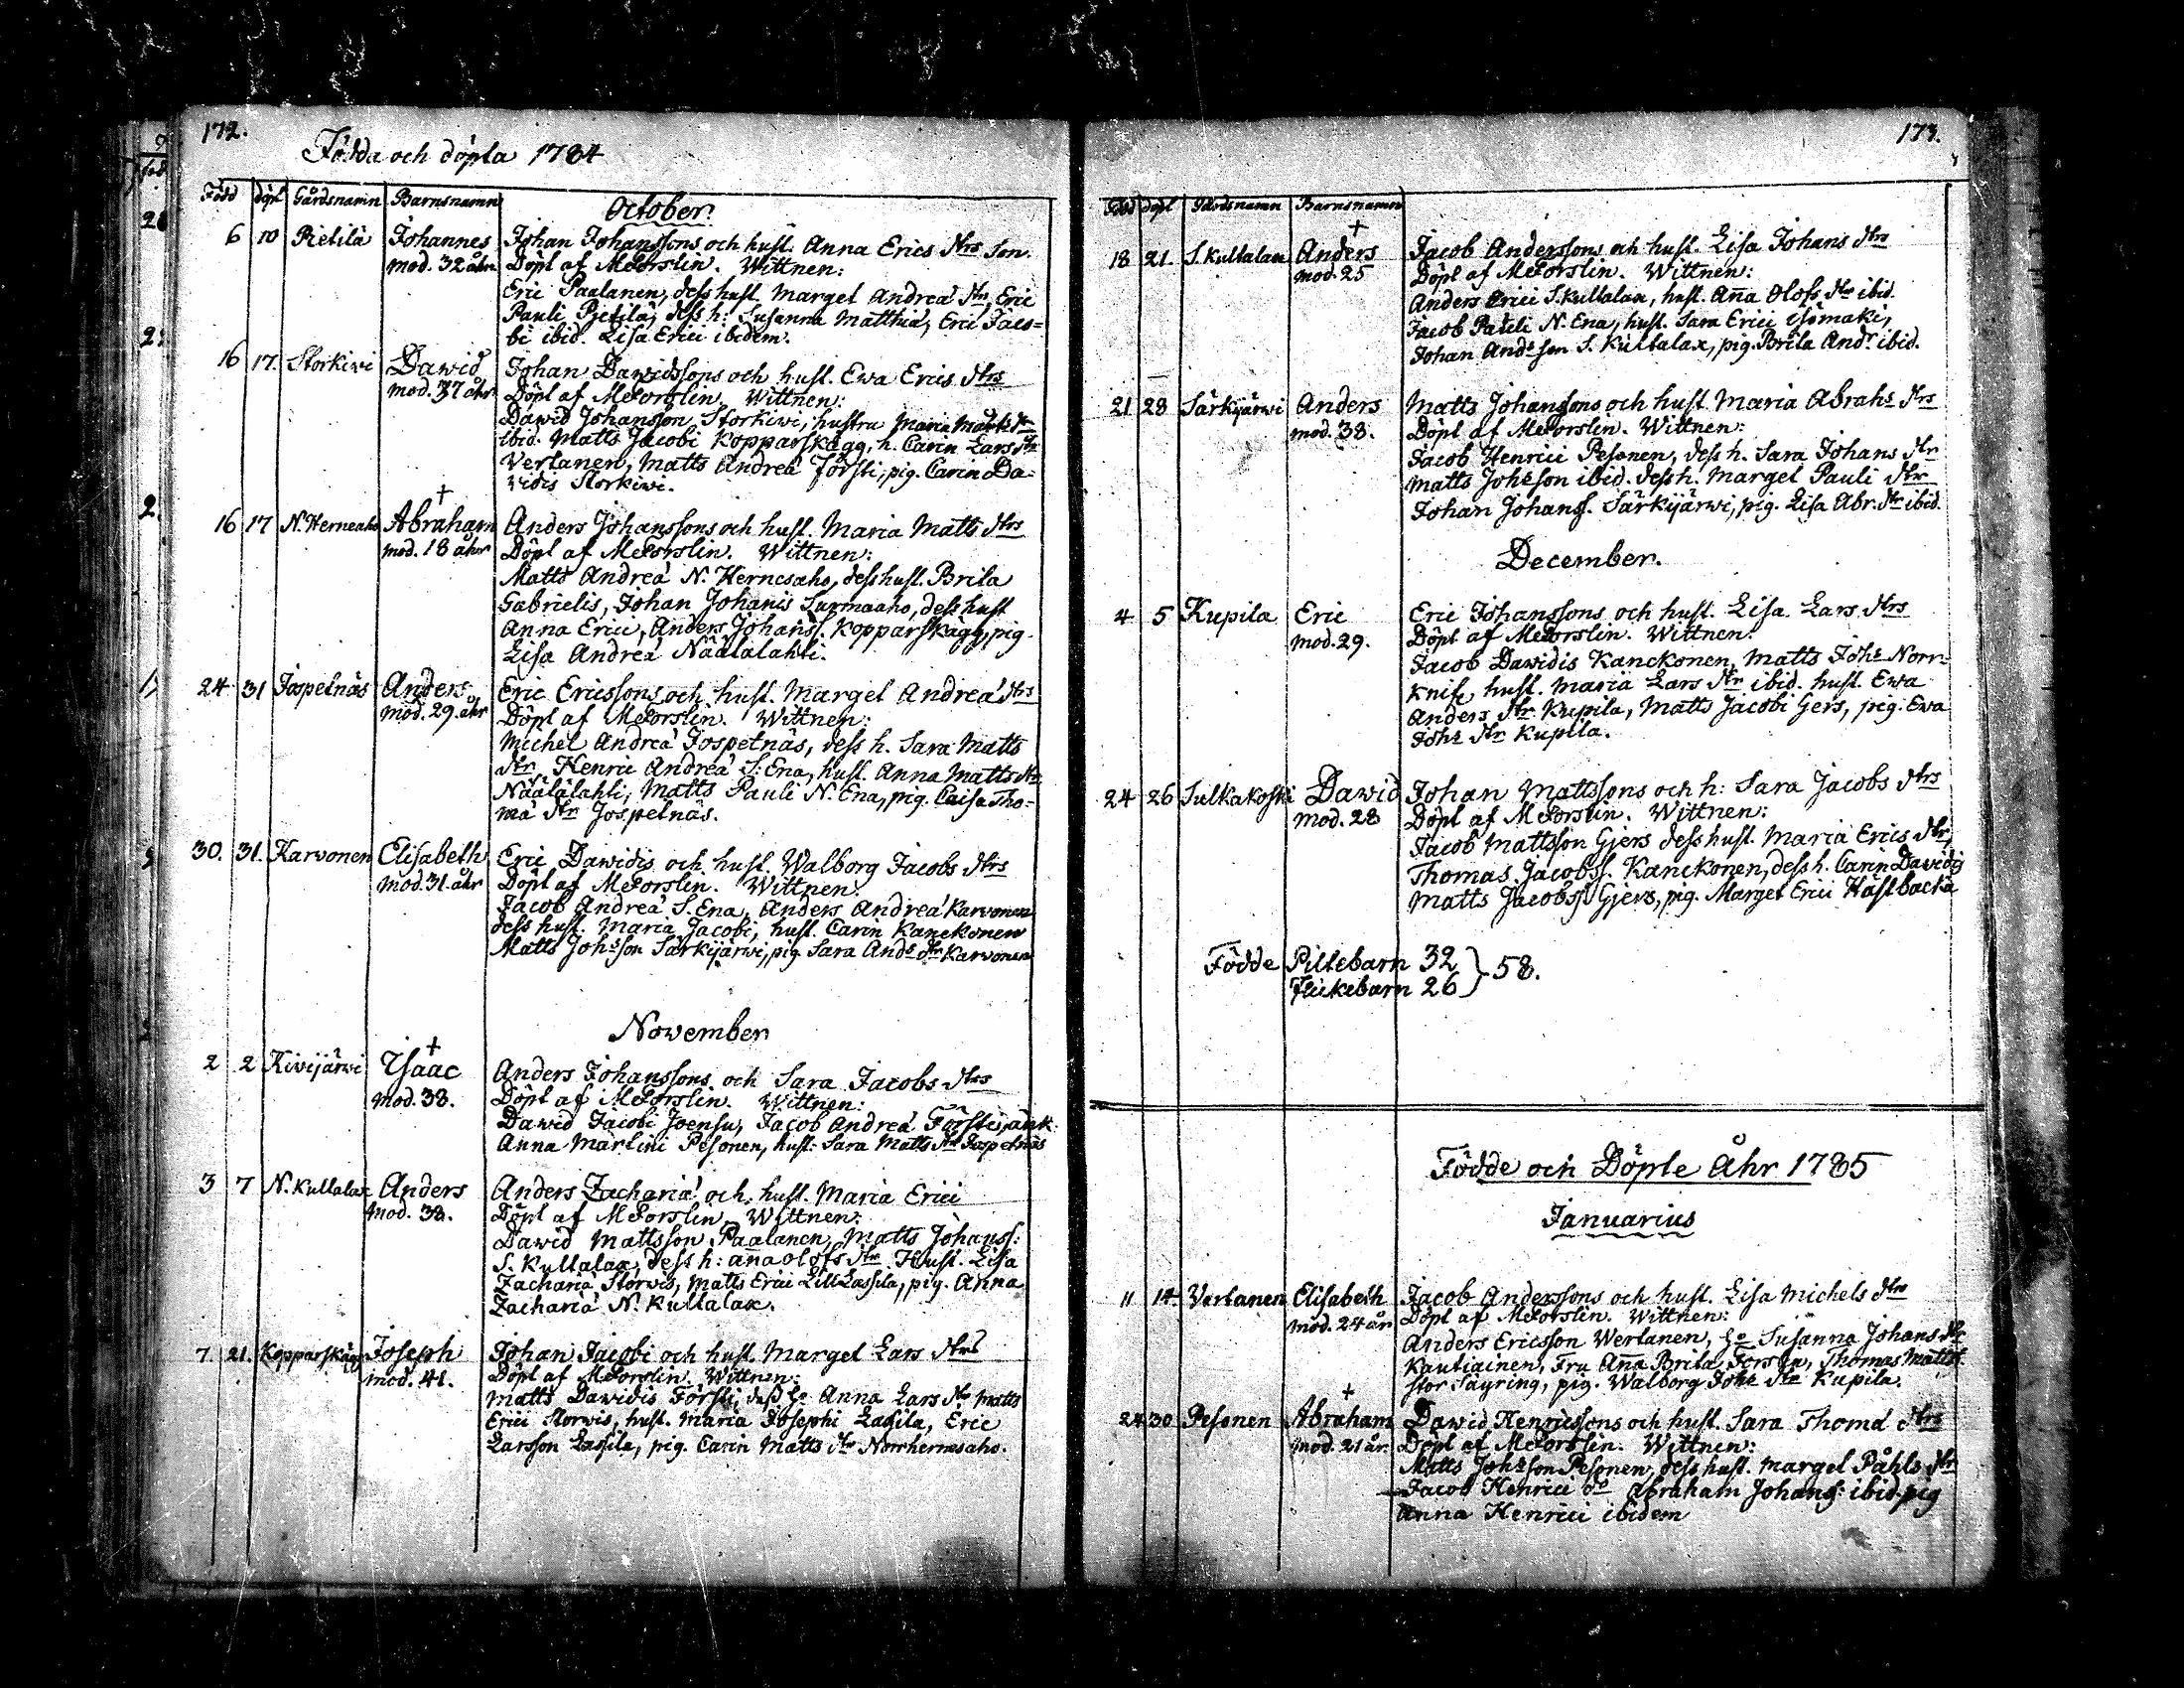 172.
Födda och döpta 1784
Född döpt Gårdsnamn Barnsnamn
October.
6 10 Pietilä Johannes Johan Johanssons och hust. Anna Erics dtrs Son.
mod. 32 åhr Döpt af M Forslin. Wittnen:
Eric Paalanen, dess hust. Marget Andreä dtr, Eric
Pauli Pietilä, dess h: Susanna Matthiä, Eric Jaco=
bi ibid. Lisa Erici ibidem.
16 17. Storkiwi Dawid Johan Dawidssons och hust. Ewa Erics dtrs
mod. 37 åhr Döpt af M Forslin. Wittnen:
Dawid Johansson Storkiwi, hustru Maria Matts dr
ibid. Matts Jacobi Kopparskägg, h. Carin Lars dtr
Vertanen, Matts Andreä Försti, pig. Carin Da=
vidis Storkiwi.
†
16 17 N. Herneaho Abraham Anders Johanssons och hust. Maria Matts dtrs
mod. 18 åhr Döpt af M Forslin. Wittnen:
Matts Andreä N. Hernesaho, dess hust. Brita
Gabrielis, Johan Johanis Surmaaho, dess hust
Anna Erici, Anders Johanss. Kopparskägg, pig.
Lisa Andreä Näätälahti.
24 31 Jospetnäs Anders Eric Ericssons och hust. Marget Andreä dtrs
mod. 29. åhr Döpt af M Forslin. Wittnen:
Michel Andreä Jospetnäs, dess h. Sara Matts
dtr, Henric Andreä S: Ena, hust. Anna Matts dtr
Näätälahti, Matts Pauli N. Ena, pig. Caisa Tho=
mä dtr Jospetnäs.
30. 31. Karvonen Elisabeth Eric Dawidis och hust. Walborg Jacobs dtrs
mod. 31. åhr Döpt af M Forslin. Wittnen:
Jacob Andreä S. Ena, Anders Andreä Karvonen
dess hust. Maria Jacobi, hust. Carin Kanckonen
Matts Johsson Särkijärwi, pig. Sara Ands dtr Karvonen
November
†
2 2 Kivijärwi Isaac Anders Johanssons och Sara Jacobs dtrs
mod. 38. Döpt af M Forslin. Wittnen:
Dawid Jacobi Joensu, Jacob Andreä Försti, änk.
Anna Martini Pesonen, hust. Sara Matts dtr Jospetnäs
3 7 N. Kultalax Anders Anders Zachariä och hust. Maria Erici
mod. 38. Döpt af M Forslin. Wittnen:
Dawid Mattsson Paalanen, Matts Johanss:
S. Kultalax, dess h: Aña Olofs dtr. Hust. Lisa
Zachariä Storwis, Matts Erici Lill Lassila, pig. Anna
Zachariä N. Kultalax.
7. 21. Kopparskägg Joseph Johan Jacobi och hust. Marget Lars dtrs
mod. 41. Döpt af M Forslin. Wittnen:
Matts Dawidis Försti, dess ha Anna Lars dtr Matts
Erici Storwis, hust. Maria Josephi Lassila, Eric
Larsson Lassila, pig. Carin Matts dtr Norrhernesaho.
173.
Född döpt Gårdsnamn Barnsnamn
†
18 21. S. Kultalax Anders Jacob Anderssons och hust. Lisa Johans dtrs
mod. 25 Döpt af M Forslin. Wittnen:
Anders Erici S. Kultalax, hust. Aña Olofs dtr ibid.
Jacob Pauli N. Ena, hust. Sara Erici Isomaki,
Johan Andsson S. Kultalax, pig. Brita Andr ibid.
21 28 Särkijärwi Anders Matts Johanssons och hust. Maria Abrahs dtrs
mod. 38. Döpt af M Forslin. Wittnen:
Jacob Henrici Pesonen, dess h. Sara Johans dtr
Matts Johsson ibid. dess h. Marget Pauli dtr
Johan Johanss. Särkijärwi, pig. Lisa Abr. dtr ibid.
December.
4 5 Kupila Eric Eric Johanssons och hust. Lisa Lars dtrs
mod. 29. Döpt af M Forslin. Wittnen:
Jacob Dawidis Kanckonen, Matts Johs Norr=
knif, hust. Maria Lars dtr ibid. hust. Ewa
Anders dtr Kupila, Matts Jacobi Gers, pig. Ewa
Johs dtr Kupila.
24 26 Sulkakoski Dawid Johan Mattssons och h: Sara Jacobs dtrs
mod. 28 Döpt af M Forslin. Wittnen:
Jacob Mattsson Gjers dess hust. Maria Erics dtr,
Thomas Jacobss. Kanckonen, dess h. Carin Dawidis
Matts Jacobss Gjers, pig. Marget Erici Hästbacka
Födde Piltebarn 32 } 58.
Flickebarn 26
Födde och Döpte Åhr 1785
Januarius
11 14 Vertanen Elisabeth Jacob Anderssons och hust. Lisa Michels dtrs
mod. 24 år Döpt af M Forslin. Wittnen:
Anders Ericsson Wertanen, ha Susanna Johans dtr
Kautiainen, Fru Aña Brita Forslin, Thomas Matts
Stor Säyring, pig. Walborg Johs dtr Kupila.
†
24 30 Pesonen Abraham Dawid Henricssons och hust. Sara Thomä dtrs
mod. 21 år. Döpt af M Forslin. Wittnen:
Matts Johsson Pesonen, dess hust. Marget Påhls dtr
Jacob Henrici do Abraham Johans: ibid. pig
Anna Henrici ibidem